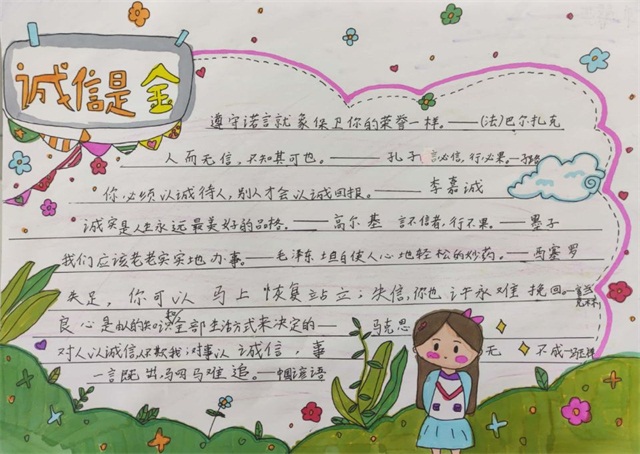 诚信是金
遵守诺言就象保卫你的荣誉一样。——(法)巴尔扎克
人而无信，不知其可也。——孔子 言必信，行必果。
你必须以诚待人，别人才会以诚回报。——李嘉诚
诚实是人生永远最美好的品格。——高尔基 言不信者，行不果。——墨子
我们应该老老实实地办事。——毛泽东 坦白使人心地轻松的妙药。——西塞罗
失足，你可以马上恢复站立；失信，你也许永难挽回。——富兰克林
良心是由的知识和全部生活方式来决定的——马克思
对人以诚信人不欺我对事以诚信，事无不成
一言既出驷马难追。——中国谚语